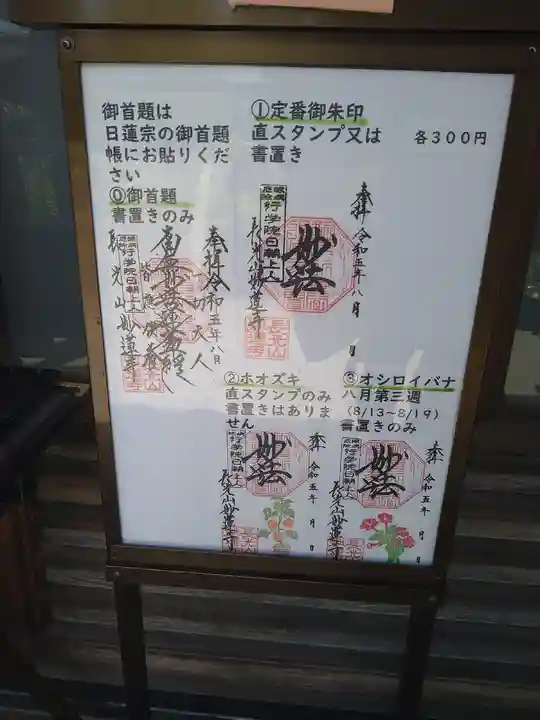 御首題は
日蓮宗の御首題
帳にお貼りくだ
さい
⓪御首題
書置きのみ
奉拝 令和五年八月
一切天人
南無妙法蓮華経
皆應供養
行学院日朝上人
長光山妙蓮寺
①定番御朱印
直スタンプ又は
書置き
各300円
奉拝 令和五年八月 日
妙法
行学院日朝上人
長光山妙蓮寺
②ホオズキ
直スタンプのみ
書置きはありま
せん
奉拝 令和五年 月 日
妙法
行学院日朝上人
長光山妙蓮寺
③オシロイバナ
八月第三週
(8/13~8/19)
書置きのみ
奉拝 令和五年 月 日
妙法
行学院日朝上人
長光山妙蓮寺